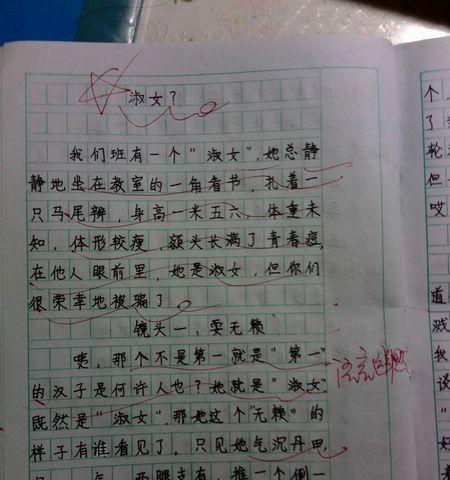 淑女?
我们班有一个"淑女",她总静
静地坐在教室的一角看书,扎着一
只马尾辫,身高一米五六,体重未
知,体形较瘦,额头长满了青春痘,
在他人眼前里,她是淑女,但你们
很荣幸地被骗了。
镜头一,耍无赖
咦,那个不是第一就是"第一"
的汉子是何许人也?她就是"淑女"
既然是"淑女",那她这个"无赖"的
样子有谁看见了,只见她气沉丹田,
气,两腿支有,推一个倒一
个,
了
轮
但一
哎
道
戏
我
说
"
好